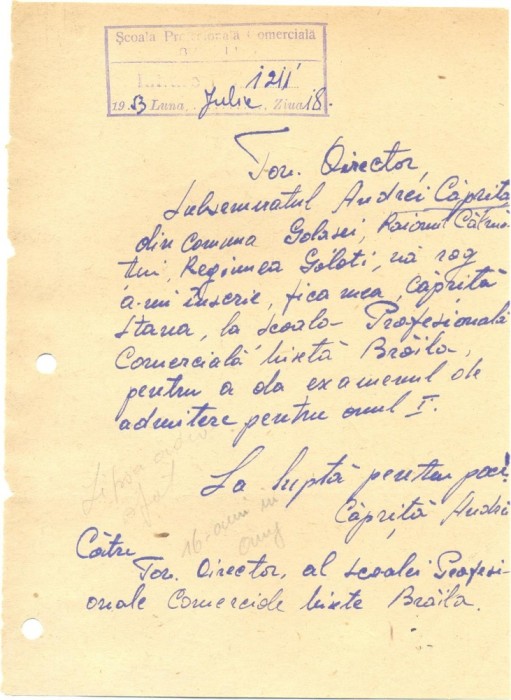 Școala Profesională Comercială
1211
1953 Luna, Julie Ziua 18.
Tov. Director,
Subsemnatul Andrei Căpriță
din comuna Golașei, Raionul Călmă-
țui, Regiunea Galați, vă rog
a-mi înscrie, fica mea, Căpriță
Stana, la școala Profesională
Comercială mixtă Brăila,
pentru a da examenul de
admitere pentru anul I.
Lipsa
La luptă pentru pace!
16 ani în
aug
Căpriță Andrei
Către
Tov. Director, al școalei Profesi-
onale Comerciale mixte Brăila.